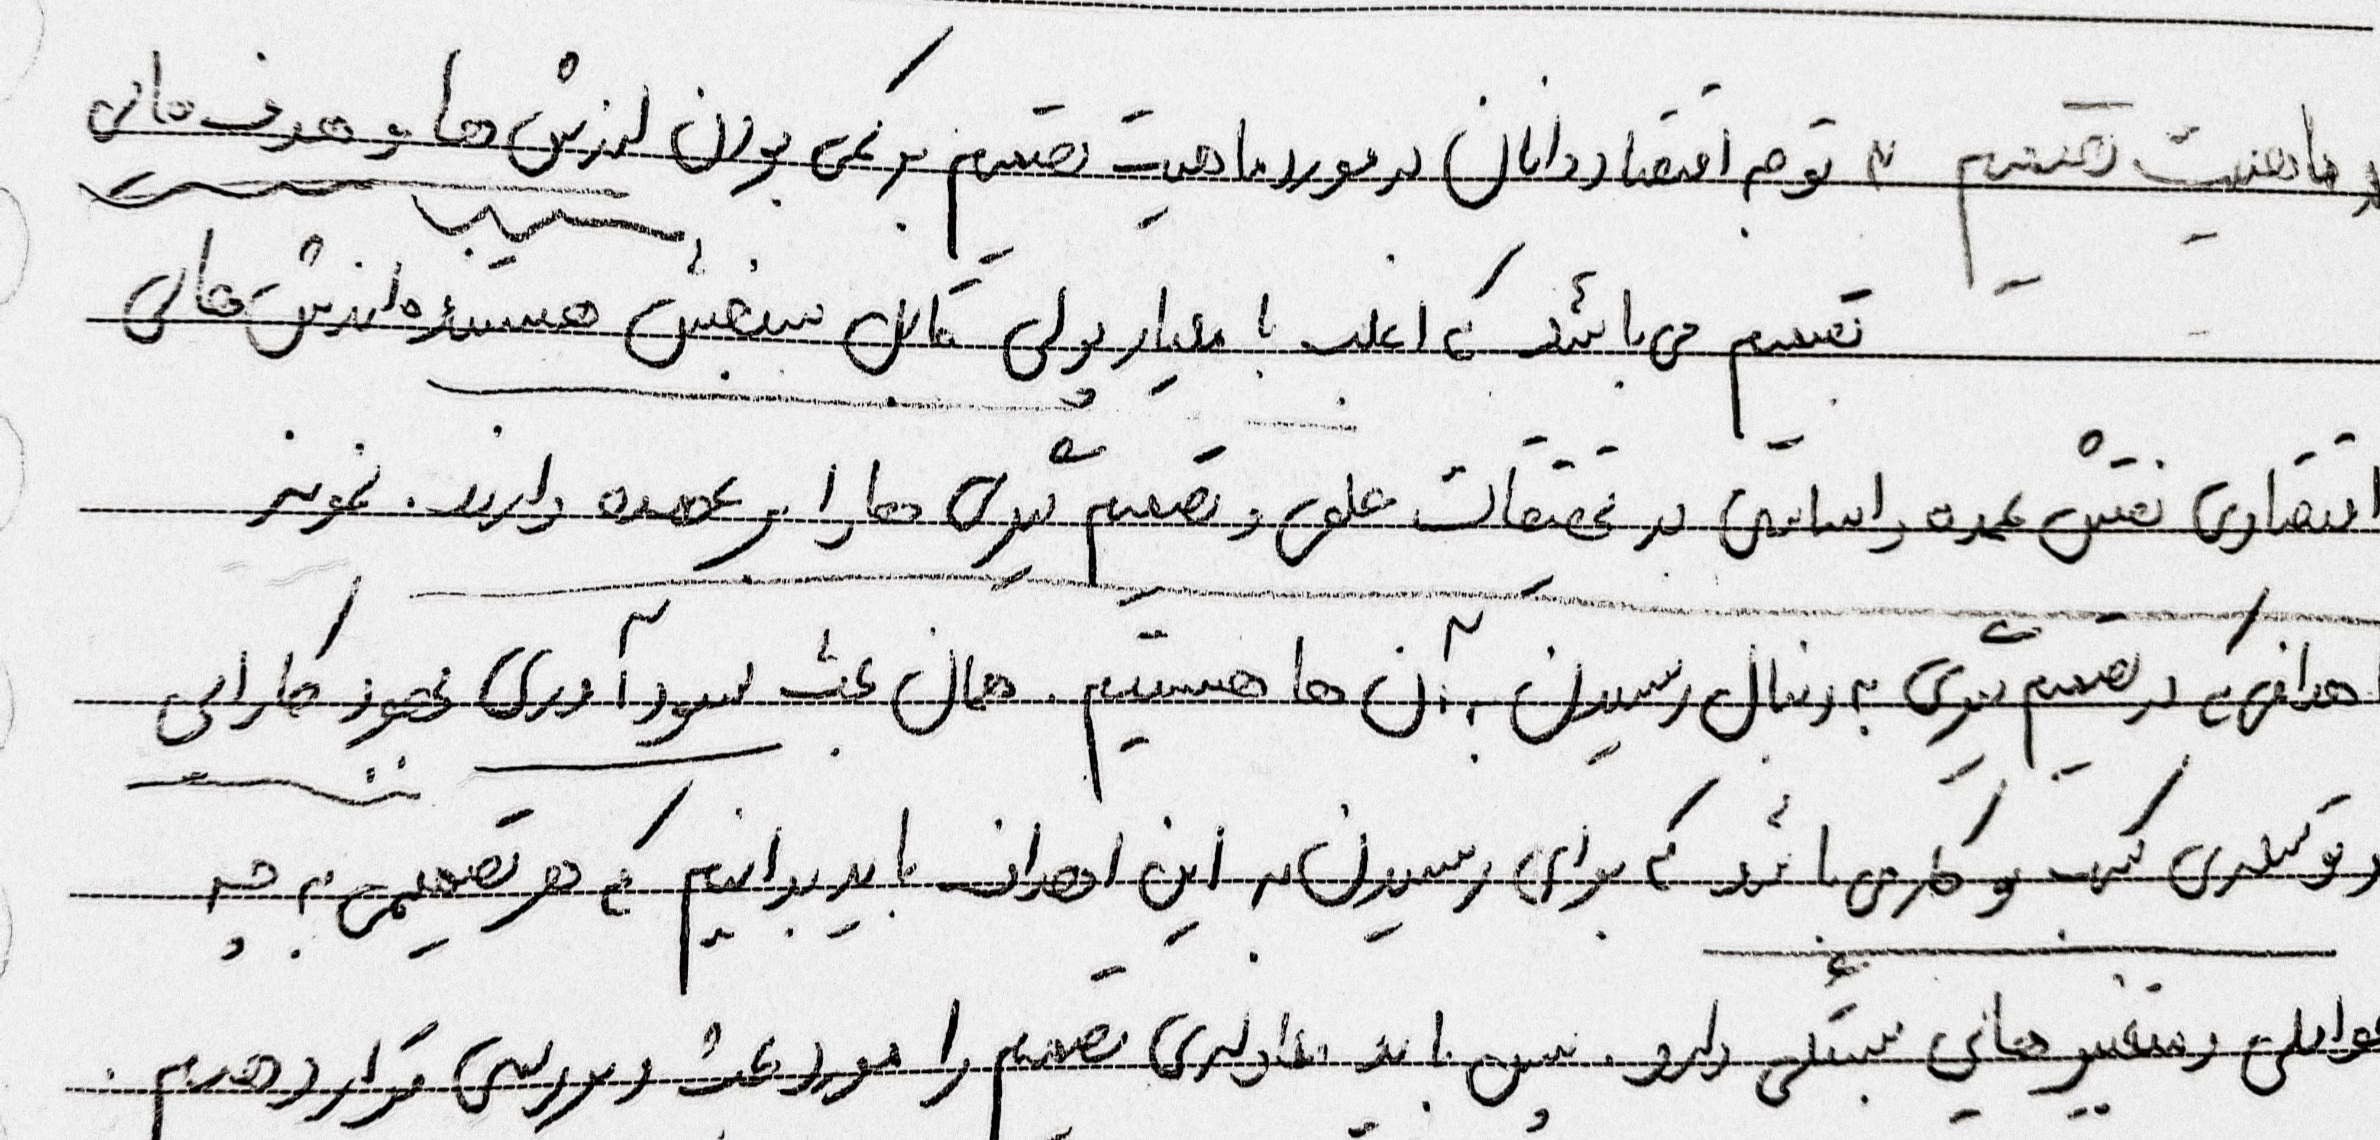 ماهیت تصمیم ← توجه اقتصاددانان در مورد ماهیت تصمیم بر کمی بودن ارزش ها و هدف های
تصمیم می باشد که اغلب با معیار پولی قابل سنجش هستند ارزش های
اقتصادی نقش عمده و اساسی در تحقیقات علمی و تصمیم گیری ها را بر عهده دارند.
اهدافی که در تصمیم گیری به دنبال رسیدن به آن ها هستیم. همان بحث سودآوری بهبود کارایی
و نوع گیری کسب و کار می باشد که برای رسیدن به این اهداف باید بدانیم که هر تصمیمی به چه
عواملی و متغیر هایی بستگی دارد. پس باید تصمیم را مورد بحث و بررسی قرار دهیم.